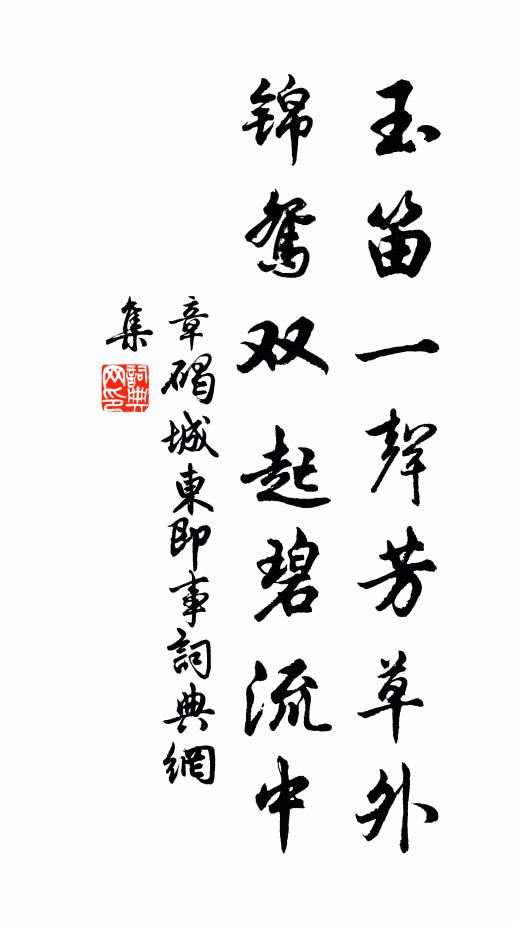 玉笛一聲芳草外
锦鸳双起碧流中
章碣城東即事詞典網
集
詞典网印